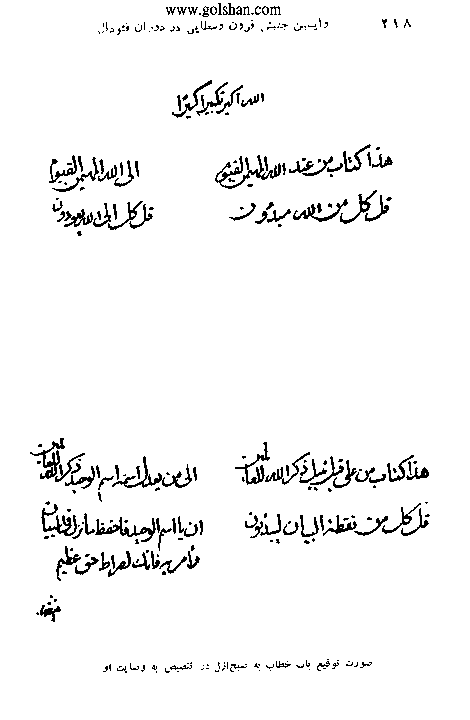 www.golshan.com
۲۱۸ واپسین جنبش قرون وسطایی در دوران فئودال
الله اکبر تکبیرا کبیرا
هذا کتاب من عند الله المهیمن القیوم الی الله المهیمن القیوم
قل کل من الله مبدئون قل کل الی الله یعودون
هذا کتاب من علی قبل نبیل ذکر الله للعالمین الی من یعدل اسمه اسم الوحید ذکر الله للعالمین
قل کل من نقطة البیان لیبدئون ان یا اسم الوحید فاحفظ ما نزل فی البیان
وأمر به فانک لصراط حق عظیم
صورت توقیع باب خطاب به صبح ازل در تنصیص به وصایت او